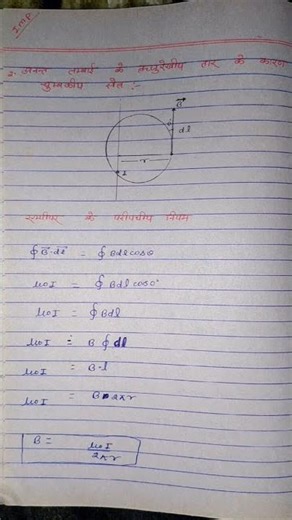 IMP
2. अनन्त लम्बाई के ऋजुरेखीय तार के कारण
चुम्बकीय क्षेत्र :-
B
dl
r
I
एम्पीयर के परिपथीय नियम
∮B·dl = ∮Bdlcosθ
μ₀I = ∮Bdl cos0°
μ₀I = ∮Bdl
μ₀I = B∮dl
μ₀I = B·l
μ₀I = B 2πr
B = μ₀I / 2πr